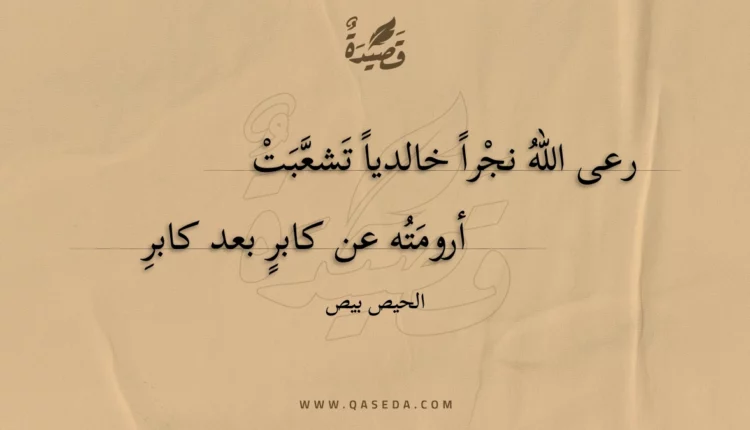 قَصِيْدَةٌ
رعى اللهُ نجْراً خالدياً تَشعَّبَتْ
أرومَتُه عن كابرٍ بعد كابرِ
الحيص بيص
WWW.QASEDA.COM